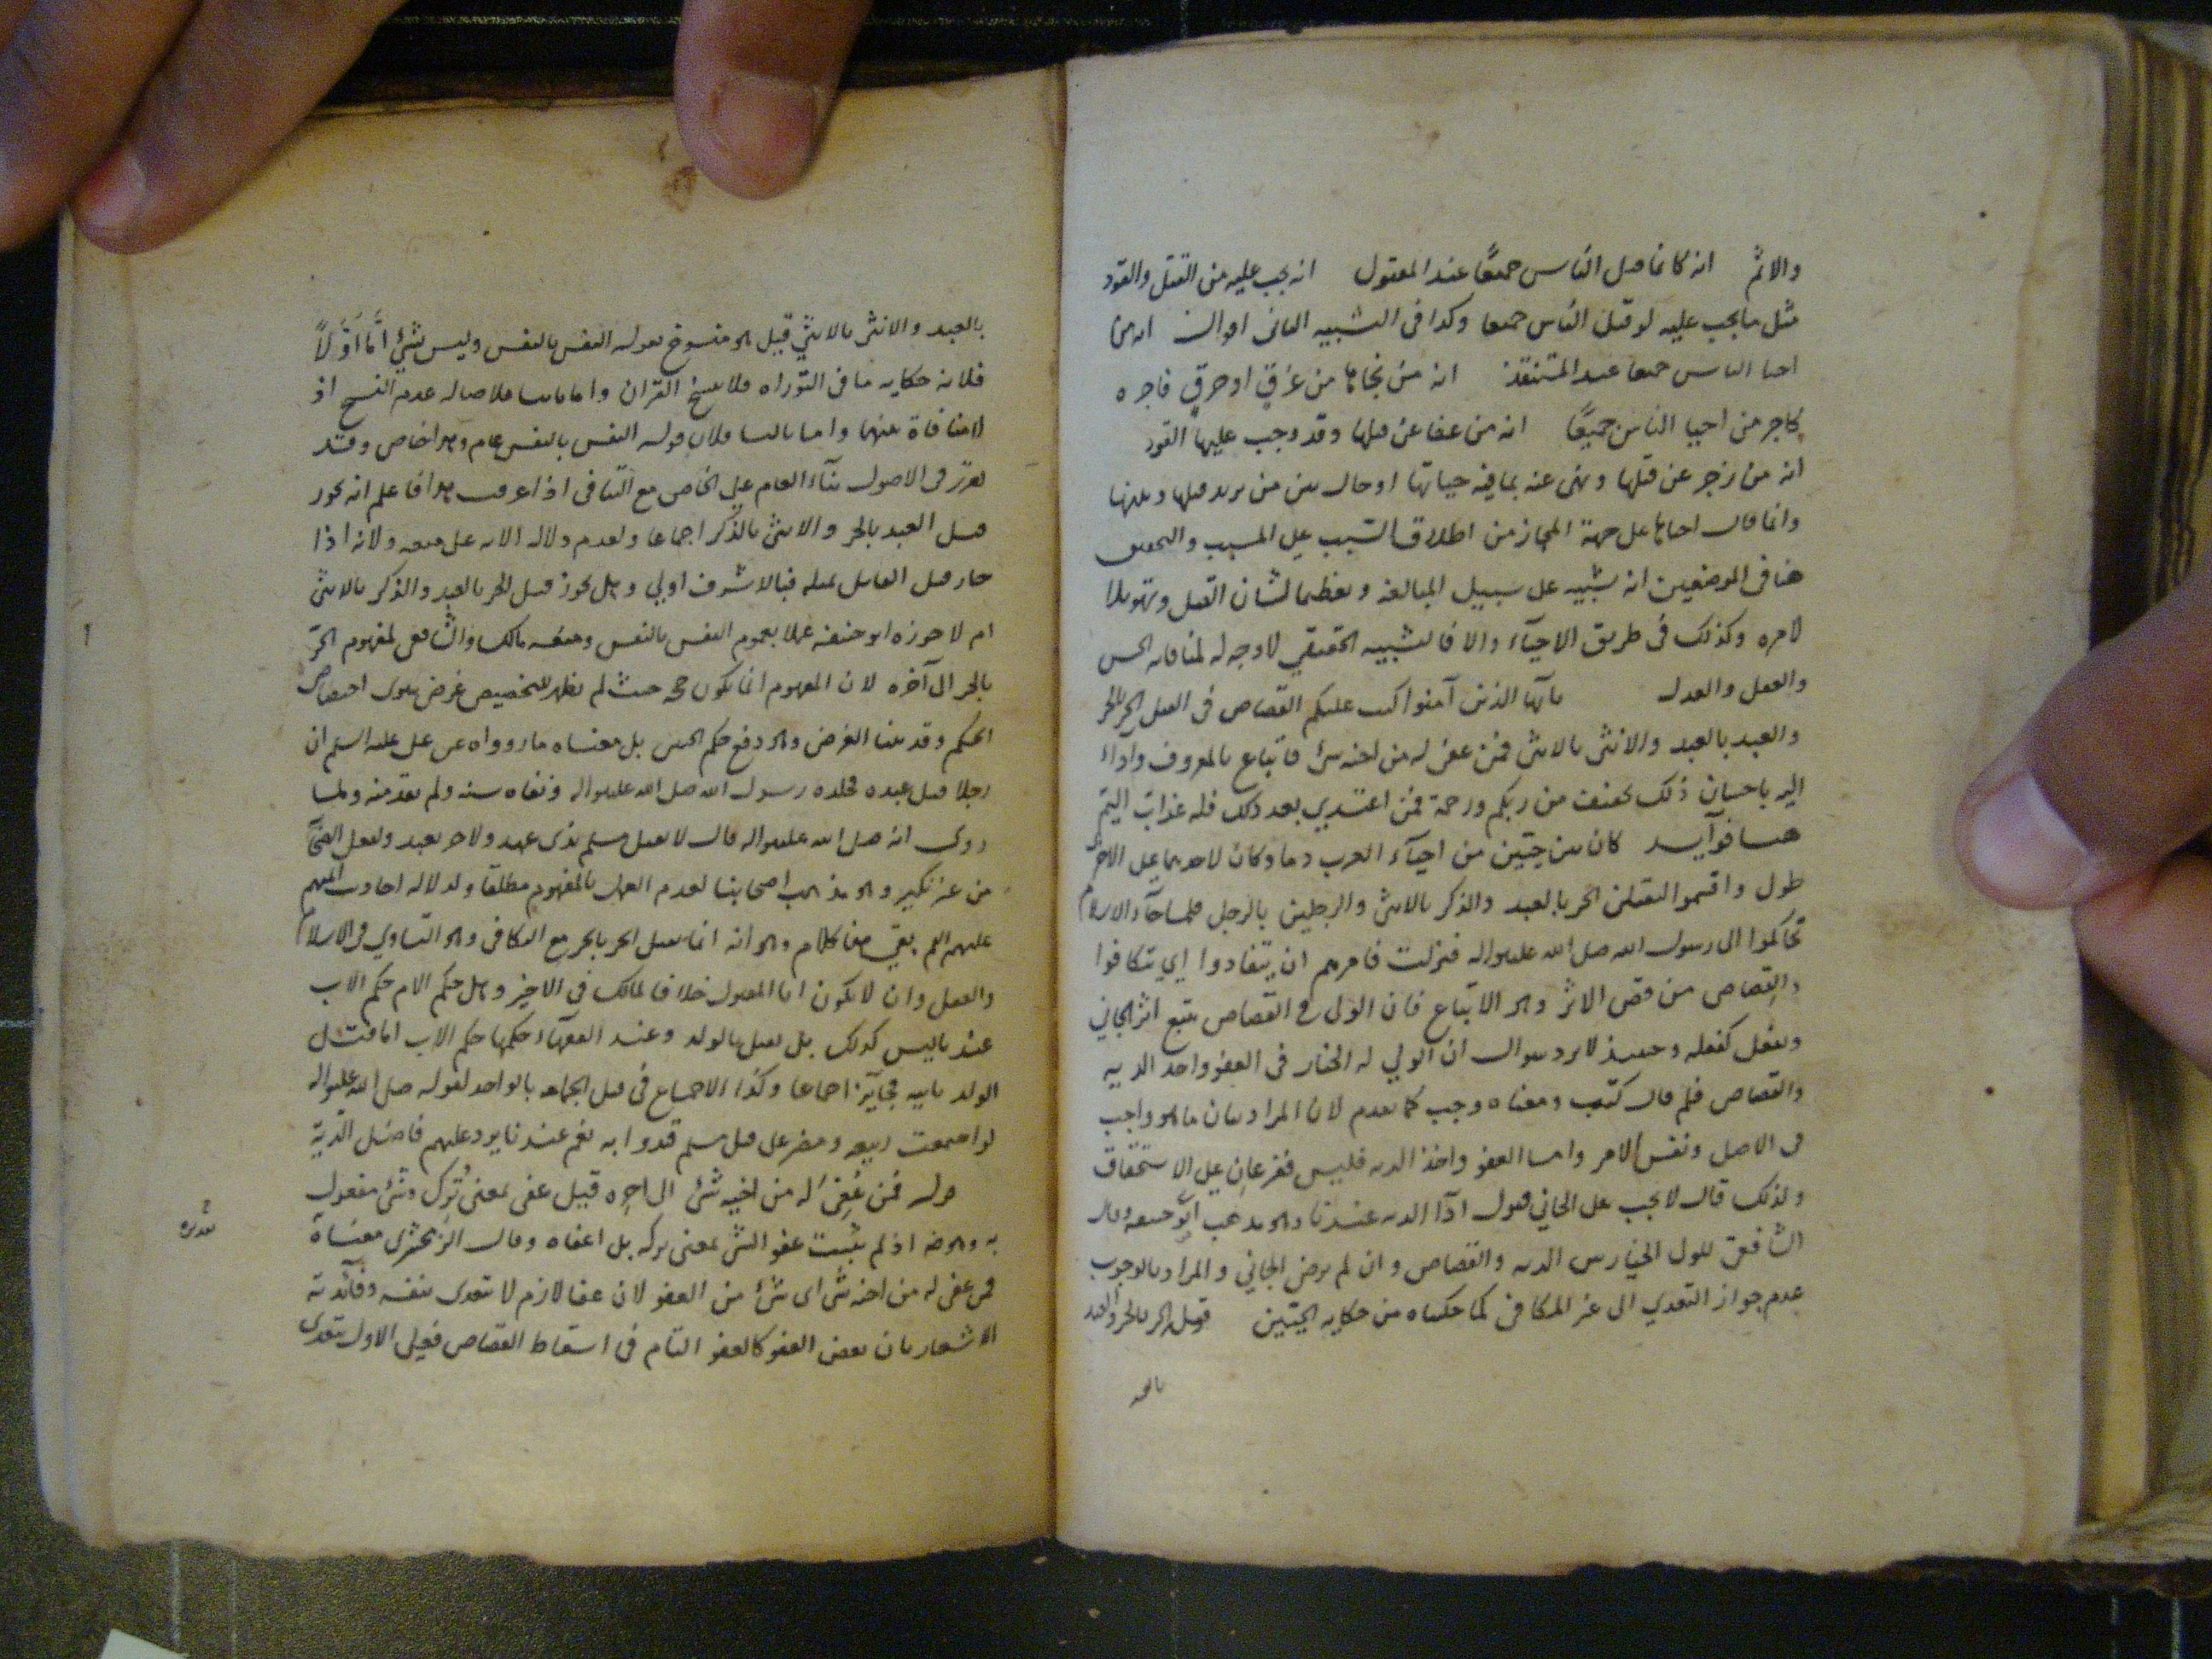 والاثم انه كانما قتل الناس جميعًا عند المقتول انه يجب عليه من القتل والقود
مثل ما يجب عليه لو قتل الناس جميعا وكذا في التشبيه الثاني اقوال انه من
احيا الناس جميعا عند المستنقذ انه من نجاها من غرق او حرق فاجره
كاجر من احيا الناس جميعًا انه من عفا عن قتلها وقد وجب عليها القود
انه من زجر عن قتلها ونهى عنه بما فيه حياتها او حال بين من يريد قتلها وبينها
وانما قال احياها على جهة المجاز من اطلاق السبب على المسبب والتحقيق
هنا في الموضعين انه تشبيه على سبيل المبالغة وتعظيما لشان القتل وتهويلا
لامره وكذلك في طريق الاحياء والا فالتشبيه الحقيقي لا وجه له لمنافاته الحس
والعقل والعدل يا ايها الذين آمنوا كتب عليكم القصاص في القتلى الحر بالحر
والعبد بالعبد والانثى بالانثى فمن عفى له من اخيه شئ فاتباع بالمعروف واداء
اليه باحسان ذلك تخفيف من ربكم ورحمة فمن اعتدي بعد ذلك فله عذاب اليم
هنا فوآيد كان بين حيّين من احيآء العرب دما وكان لاحدهما على الاخر
طول واقسموا لنقتلن الحر بالعبد والذكر بالانثى والرجلين بالرجل فلما جآء الاسلام
تحاكموا الى رسول الله صلى الله عليه واله فنزلت فامرهم ان يتفادوا اي يتكافوا
والقصاص من قص الاثر وهو الاتباع فان الولي في القصاص يتبع اثر الجاني
ويفعل كفعله وحينئذ لا يرد سوال ان الولي له الخيار في العفو واخذ الدية
والقصاص فلم قال كتب ومعناه وجب كما تقدم لان المراد بيان ما هو واجب
في الاصل ونفس الامر واما العفو واخذ الدية فليس ففرعان على الاستحقاق
ولذلك قال لا يجب على الجاني قبول اذا الدية عندنا وهو مذهب ابو حنيفه وقال
الشافعي للولي الخيار بين الدية والقصاص وان لم يرض الجاني والمراد بالوجوب
عدم جواز التعدي الى غير المكافئ كما حكيناه من حكاية الحيّين قوله الحر بالحر والعبد
بالعبد والانثى بالانثي قيل هو منسوخ بقوله النفس بالنفس وليس بشئ امّا اوّلاً
فلانه حكايه ما في التوراه فلا ينسخ القران واما ثانيا فلاصالة عدم النسخ اذ
لا منافاة بينهما واما ثالثا فلان قوله النفس بالنفس عام وهذا خاص وقد
تقرر في الاصول بنآء العام على الخاص مع التنافي اذا عرفت هذا فاعلم انه يجوز
قتل العبد بالحر والانثى بالذكر اجماعا ولعدم دلالة الاية على منعه ولانه اذا
جاز قتل القاتل بمثله فبالاشرف اولي وهل يجوز قتل الحر بالعبد والذكر بالانثى
ام لا جوزه ابو حنيفه عملا بعموم النفس بالنفس ومنعه مالك والشافعي لمفهوم الحرّ
بالحر الى آخره لان المفهوم انما يكون حجه حيث لم يظهر للتخصيص غرض سوى اختصاص
الحكم وقد بينا الغرض وهو دفع حكم الحيين بل منعناه ما رووه عن علي عليه السلم ان
رجلا قتل عبده فجلده رسول الله صلى الله عليه واله ونفاه سنه ولم يقد منه ولما
روى انه صلى الله عليه واله قال لا يقتل مسلم بذي عهد ولا حر بعبد ولفعل الصحابة
من غير نكير وهو مذهب اصحابنا لعدم العمل بالمفهوم مطلقا ولدلاله احاديث ائمتهم
عليهم السلم بقي هنا كلام وهو انه انما يقتل الحر بالحر مع التكافي وهو التساوي في الاسلام
والعقل وان لا يكون ابا المقتول خلافا لمالك في الاخير وهل حكم الام حكم الاب
عندنا ليس كذلك بل تقتل بالولد وعند الفقهآء حكمها حكم الاب اما قتل
الولد بابيه فجايز اجماعا وكذا الاجماع في قتل الجماعه بالواحد لقوله صلى الله عليه واله
لو اجتمعت ربيعه ومضر على قتل مسلم قيدوا به نعم عندنا يرد عليهم فاضل الدّية
قوله فمن عُفِيَ له من اخيه شئ الى اخره قيل عفي بمعنى تُرك وشئ مفعول
به وهو ضه اذ لم يثبت عفو الشئ بمعنى تركه بل اعفاه وقال الزمخشري معناه
فمن عفى له من اخيه شئ اى شئ من العفو لان عفا لازم لا يتعدى بنفسه وفآئدته
الاشعار بان بعض العفو كالعفو التام في اسقاط القصاص فعلى الاول يتعدى